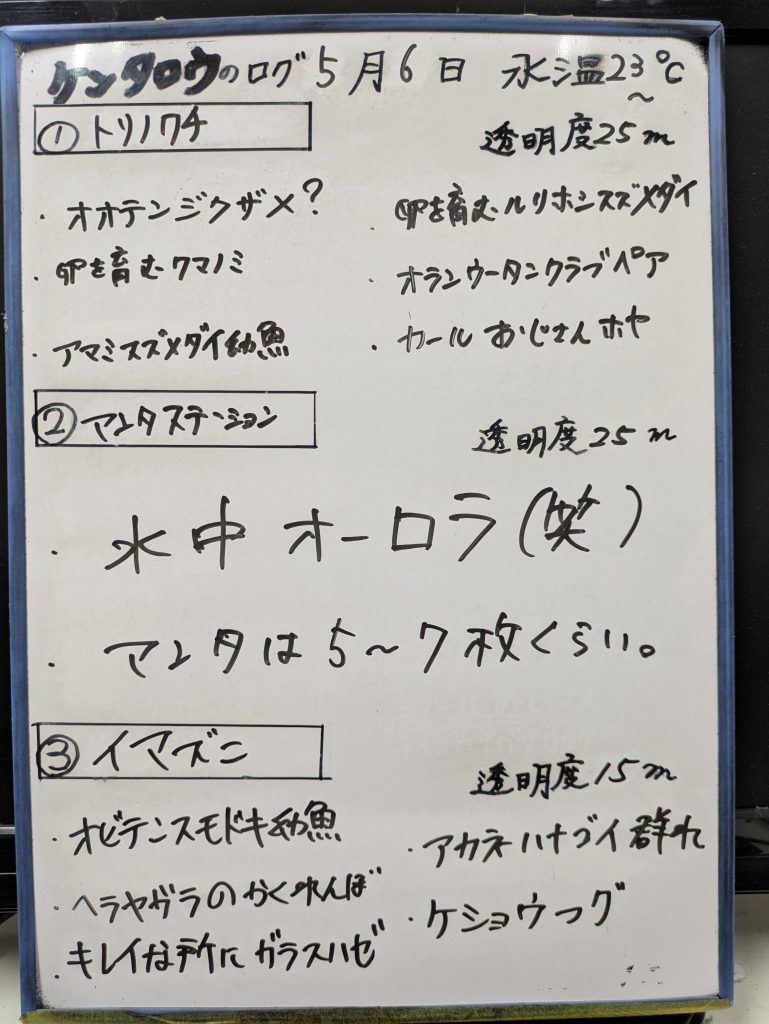 ケンタロウのログ 5月6日 水温23℃〜
①トリノクチ
透明度25m
・オオテンジクザメ?
・卵を育むクマノミ
・アマミスズメダイ幼魚
・卵を育むルリホシスズメダイ
・オランウータンクラブペア
・カールおじさんホヤ
②マンタステーション
透明度25m
・水中オーロラ(笑)
・マンタは5〜7枚くらい。
③イマズニ
透明度15m
・オビテンスモドキ幼魚
・ヘラヤガラのかくれんぼ
・キレイな所にガラスハゼ
・アカネハナゴイ群れ
・ケショウフグ